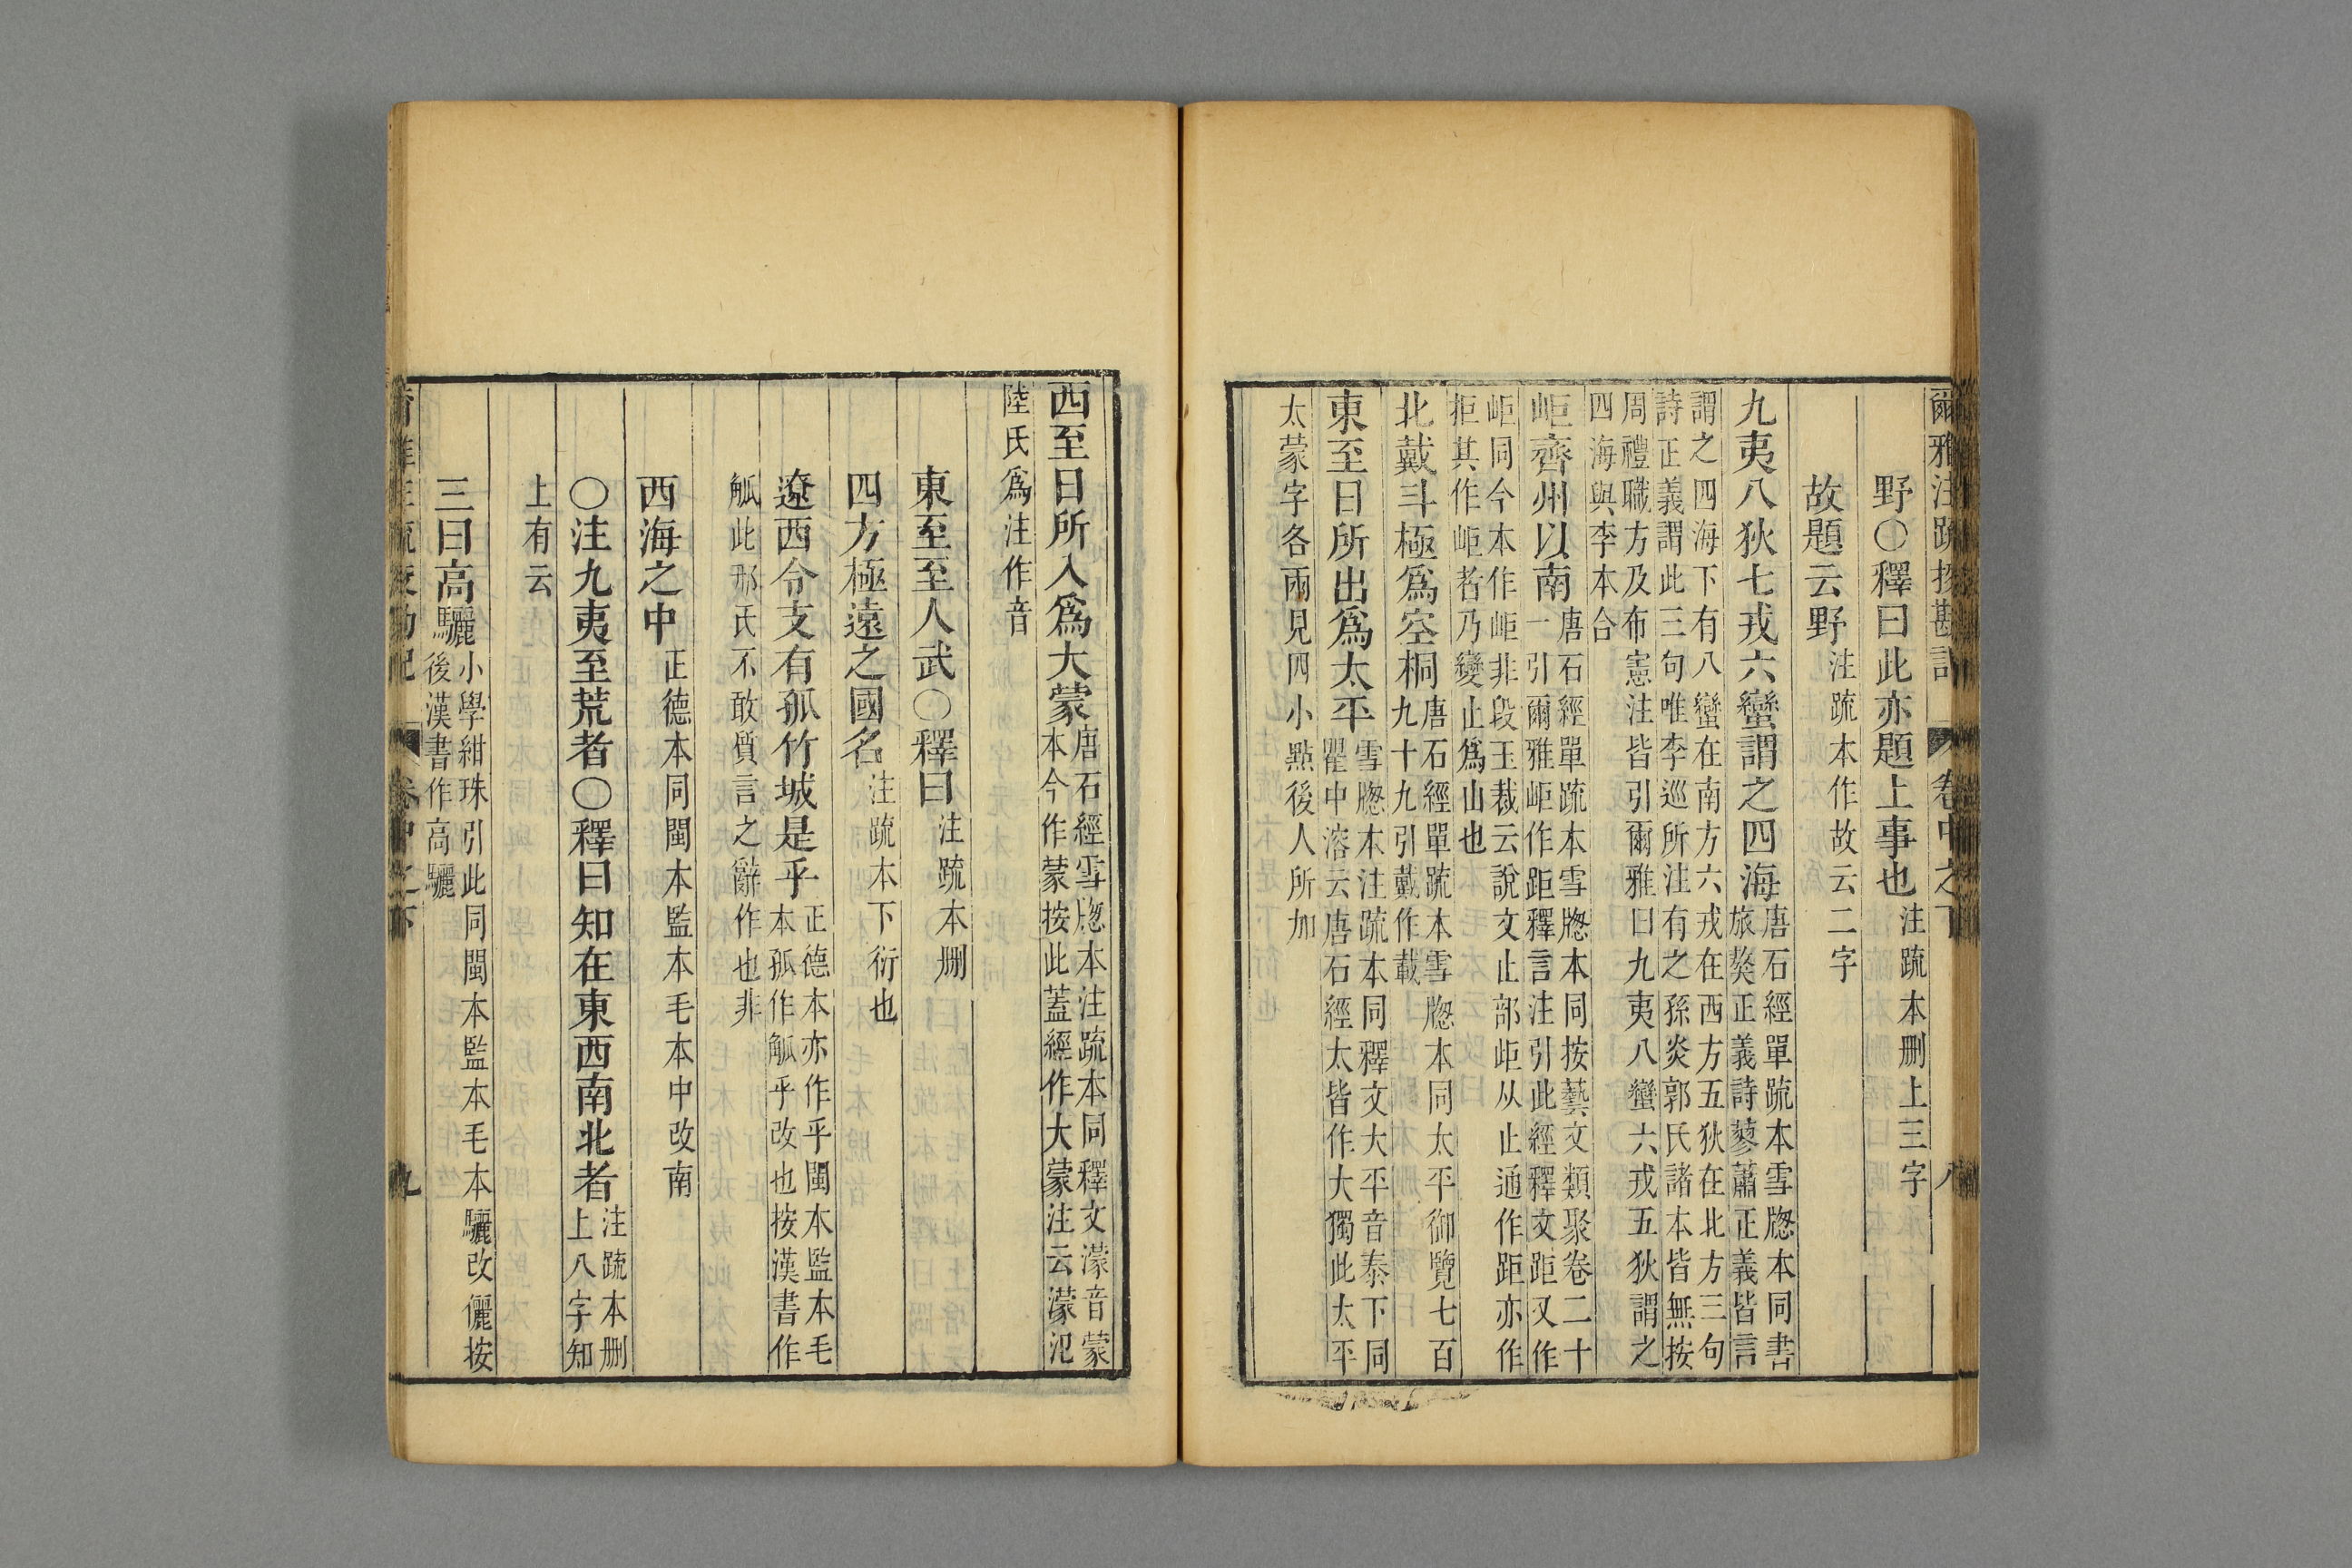 爾雅注疏挍勘記 卷中之下 八
野〇釋曰此亦題上事也注疏本刪上三字
故題云野注疏本作故云二字
九夷八狄七戎六蠻謂之四海唐石經單疏本雪牕本同書
旅獒正義詩蓼蕭正義皆言
謂之四海下有八蠻在南方六戎在西方五狄在北方三句
詩正義謂此三句唯李巡所注有之孫炎郭氏諸本皆無按
周禮職方及布憲注皆引爾雅曰九夷八蠻六戎五狄謂之
四海與李本合
岠齊州以南唐石經單疏本雪牕本同按藝文類聚卷二十
一引爾雅岠作距釋言注引此經釋文距又作
岠同今本作岠非段玉裁云說文止部歫从止通作距亦作
拒其作岠者乃變止爲山也
北戴斗極爲空桐唐石經單疏本雪牕本同太平御覽七百
九十九引戴作載
東至日所出爲太平雪牕本注疏本同釋文大平音泰下同
瞿中溶云唐石經太皆作大獨此太平
太蒙字各兩見四小點後人所加
西至日所入爲大蒙唐石經雪牕本注疏本同釋文濛音蒙
本今作蒙按此蓋經作大蒙注云濛汜
陸氏爲注作音
東至至人武〇釋曰注疏本刪
四方極遠之國名注疏本下衍也
遼西令支有孤竹城是乎正德本亦作乎閩本監本毛
本孤作觚乎改也按漢書作
觚此邢氏不敢質言之辭作也非
西海之中正德本同閩本監本毛本中改南
〇注九夷至荒者〇釋曰知在東西南北者注疏本刪
上八字知
上有云
三曰高驪小學紺珠引此同閩本監本毛本驪改儷按
後漢書作高驪
卷中之下 九